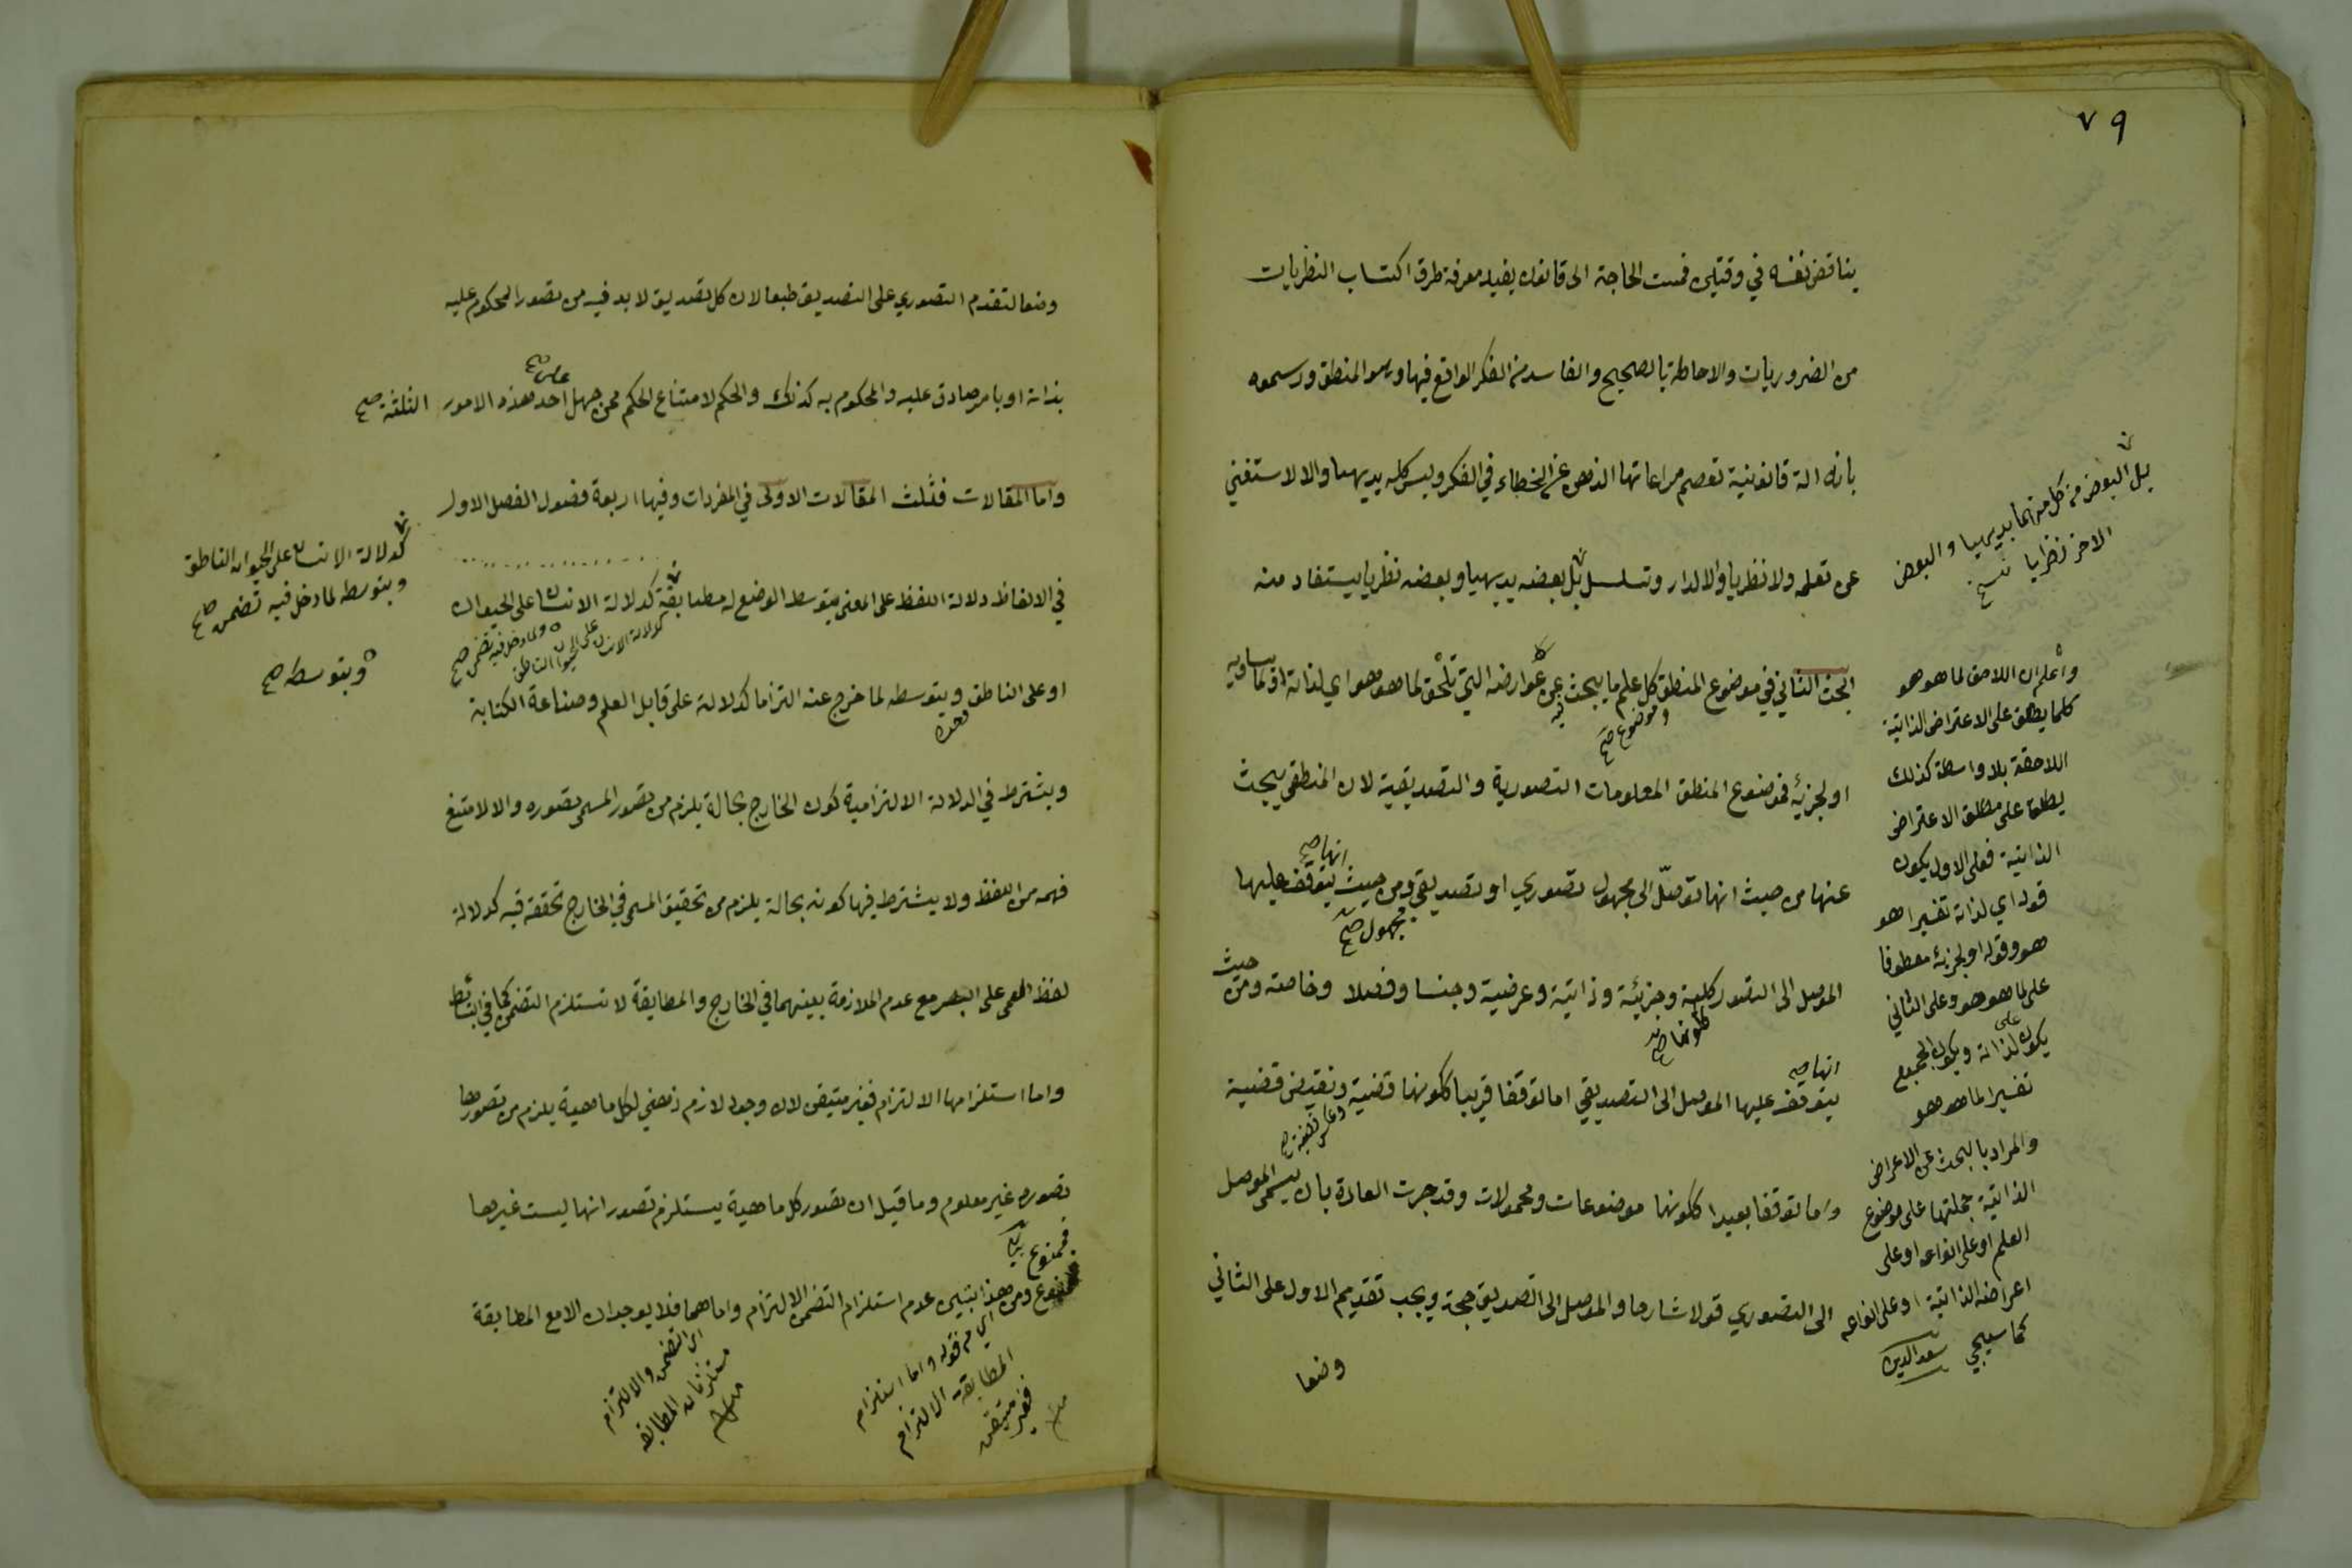 ٧٩
يناقض نفسه في وقتين فمست الحاجة الى قانون يفيد معرفة طرق اكتساب النظريات
من الضروريات والاحاطة بالصحيح والفاسد من الفكر الواقع فيها وهو المنطق ورسموه
بانه الة قانونية تعصم مراعاتها الذهن عن الخطاء في الفكر وليس كله بديهيا والا لاستغنى
عن تعلمه ولا نظريا والا لدار وتسلسل بل بعضه بديهيا وبعضه نظريا يستفاد منه
البحث الثاني في موضوع المنطق كل علم ما يبحث عن عوارضه التي تلحق لما هو هو اي لذاته او لما يساويه
فيه
وموضوع صح
او لجزئه فموضوع المنطق المعلومات التصورية والتصديقية لان المنطقي يبحث
عنها من حيث انها توصل الى مجهول تصوري او تصديقي ومن حيث يتوقف عليها
انها صح
مجهول صح
الموصل الى التصور كلية وجزئية وذاتية وعرضية وجنسا وفصلا وخاصة ومن حيث
ككونها صح
يتوقف عليها الموصل الى التصديقي اما توقفا قريبا ككونها قضية ونقيض قضية
انها صح
وعكس قضية صح
واما توقفا بعيدا ككونها موضوعات ومحمولات وقد جرت العادة بان يسمى الموصل
الى التصوري قولا شارحا والموصل الى التصديق حجة ويجب تقديم الاول على الثاني
وضعا
بل البعض من كل منهما بديهيا والبعض
الاخر نظريا
واعلم ان اللاحق لما هو هو
كلما يطلق على الاعتراض الذاتية
اللاحقة بلا واسطة كذلك
يطلق على مطلق الاعتراض
الذاتية فعلى الاول يكون
قوله اي لذاته تفسيرا هو
هو وقوله او لجزئه معطوفا
على لما هو هو وعلى الثاني
يكون على لذاته ويكون الجميع
تفسيرا لما هو هو
والمراد بالبحث عن الاعراض
الذاتية حملتها على موضوع
العلم او على انواعه او على
اعراضه الذاتية او على انواعه
كما سيجي سعد الدين
وضعا لتقدم التصوري على التصديق طبعا لان كل تصديق لا بد فيه من تصور المحكوم عليه
بذاته او بامر صادق عليه والمحكوم به كذلك والحكم لامتناع الحكم ممن جهل احد هذه الامور الثلثة صح
واما المقالات فثلث المقالات الاولى في المفردات وفيها اربعة فصول الفصل الاول
في الالفاظ دلالة اللفظ على المعنى بتوسط الوضع له مطابقة كدلالة الانسان على الحيوان
كدلالة الانسان على الحيوان الناطق
ولما دخل فيه تضمن صح
او على الناطق وبتوسطه لما خرج عنه التزاما كدلالة على قابل العلم وصناعة الكتابة
ويشترط في الدلالة الالتزامية كون الخارج بحالة يلزم من تصور المسمى تصوره والا لامتنع
فهمه من اللفظ ولا يشترط فيها كونه بحالة يلزم من تحقيق المسمى في الخارج تحققه فيه كدلالة
لفظ العمى على البصر مع عدم الملازمة بينهما في الخارج والمطابقة لا تستلزم التضمن كما في البسائط
واما استلزامها الالتزام فغير متيقن لان وجود لازم ذهني لكل ماهية يلزم من تصورها
تصوره غير معلوم وما قيل ان تصور كل ماهية يستلزم تصور انها ليست غيرها
فممنوع
ومن هذا تبين عدم استلزام التضمن الالتزام واما هما فلا يوجدان الا مع المطابقة
كدلالة الانسان على الحيوان الناطق
وبتوسطه لما دخل فيه تضمن صح
وبتوسطه صح
اي من قوله واما استلزام
المطابقة الالتزام
فغير متيقن
اي التضمن والالتزام
مستلزمان المطابقة